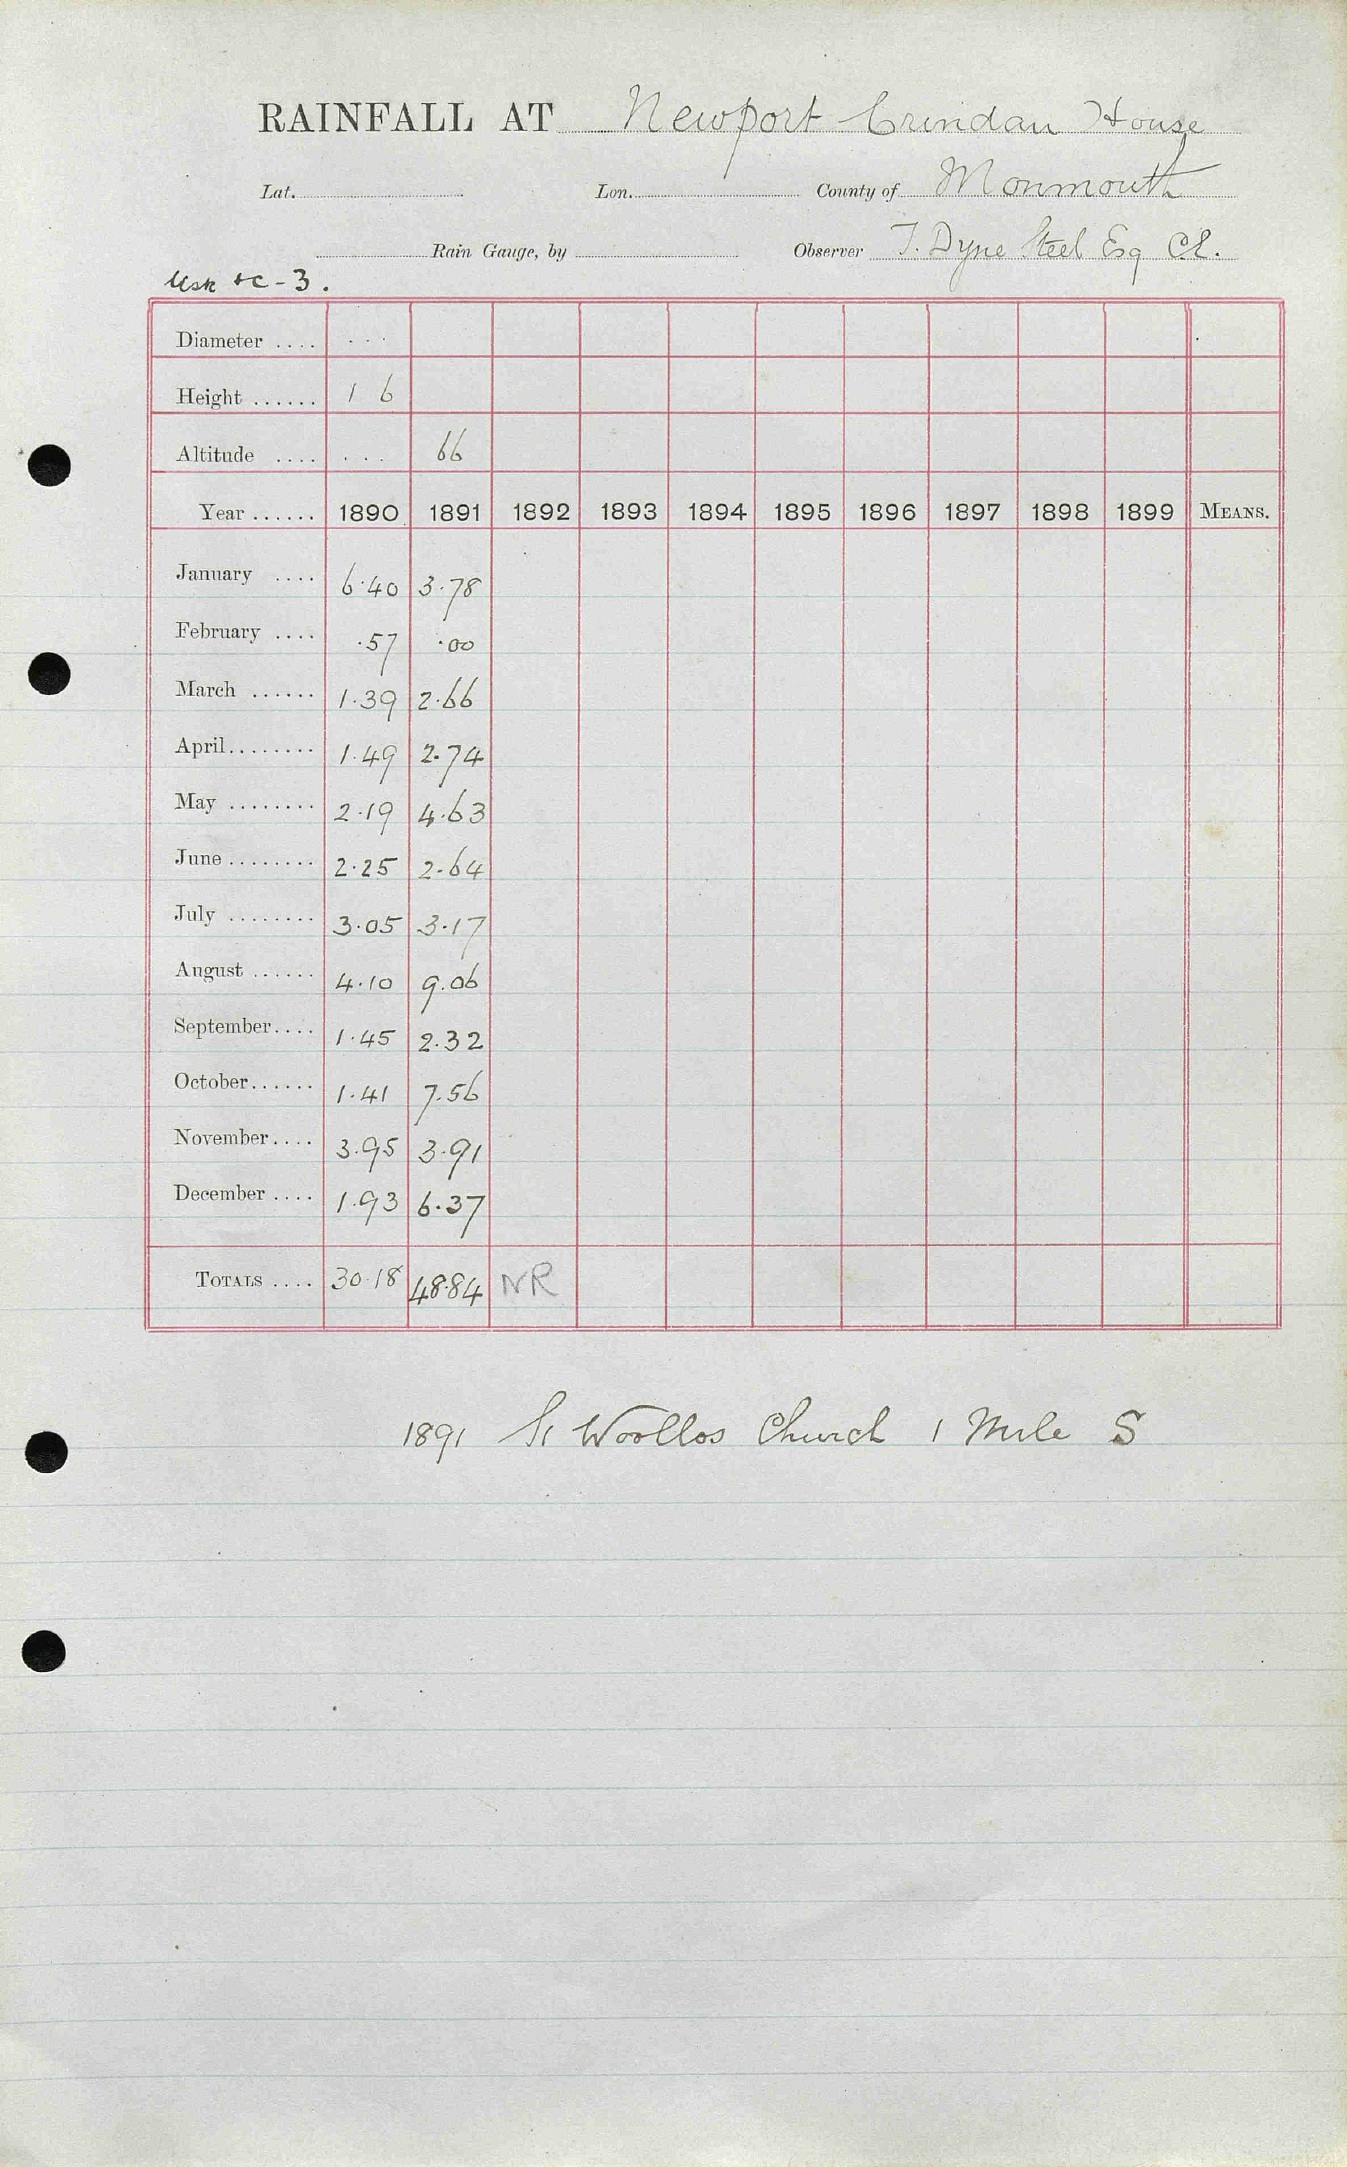 RAINFALL AT Newport Crindau House
Lat. Lon. County of Monmouth
Rain Gauge, by Observer T. Dyne Steel Esq C.E.
Usk &c - 3.
Diameter .... ...
Height ...... 1 6
Altitude .... ... 66
Year ...... 1890 1891 1892 1893 1894 1895 1896 1897 1898 1899 MEANS.
January .... 6.40 3.78
February .... .57 .00
March ...... 1.39 2.66
April........ 1.49 2.74
May ........ 2.19 4.63
June ........ 2.25 2.64
July ........ 3.05 3.17
August ...... 4.10 9.06
September.... 1.45 2.32
October...... 1.41 7.56
November.... 3.95 3.91
December .... 1.93 6.37
TOTALS .... 30.18 48.84 NR
1891 St Woollos Church 1 Mile S